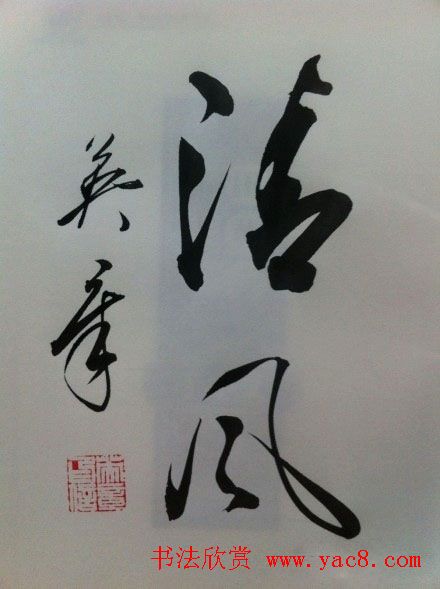 清风
英章
书法欣赏 www.yac8.com